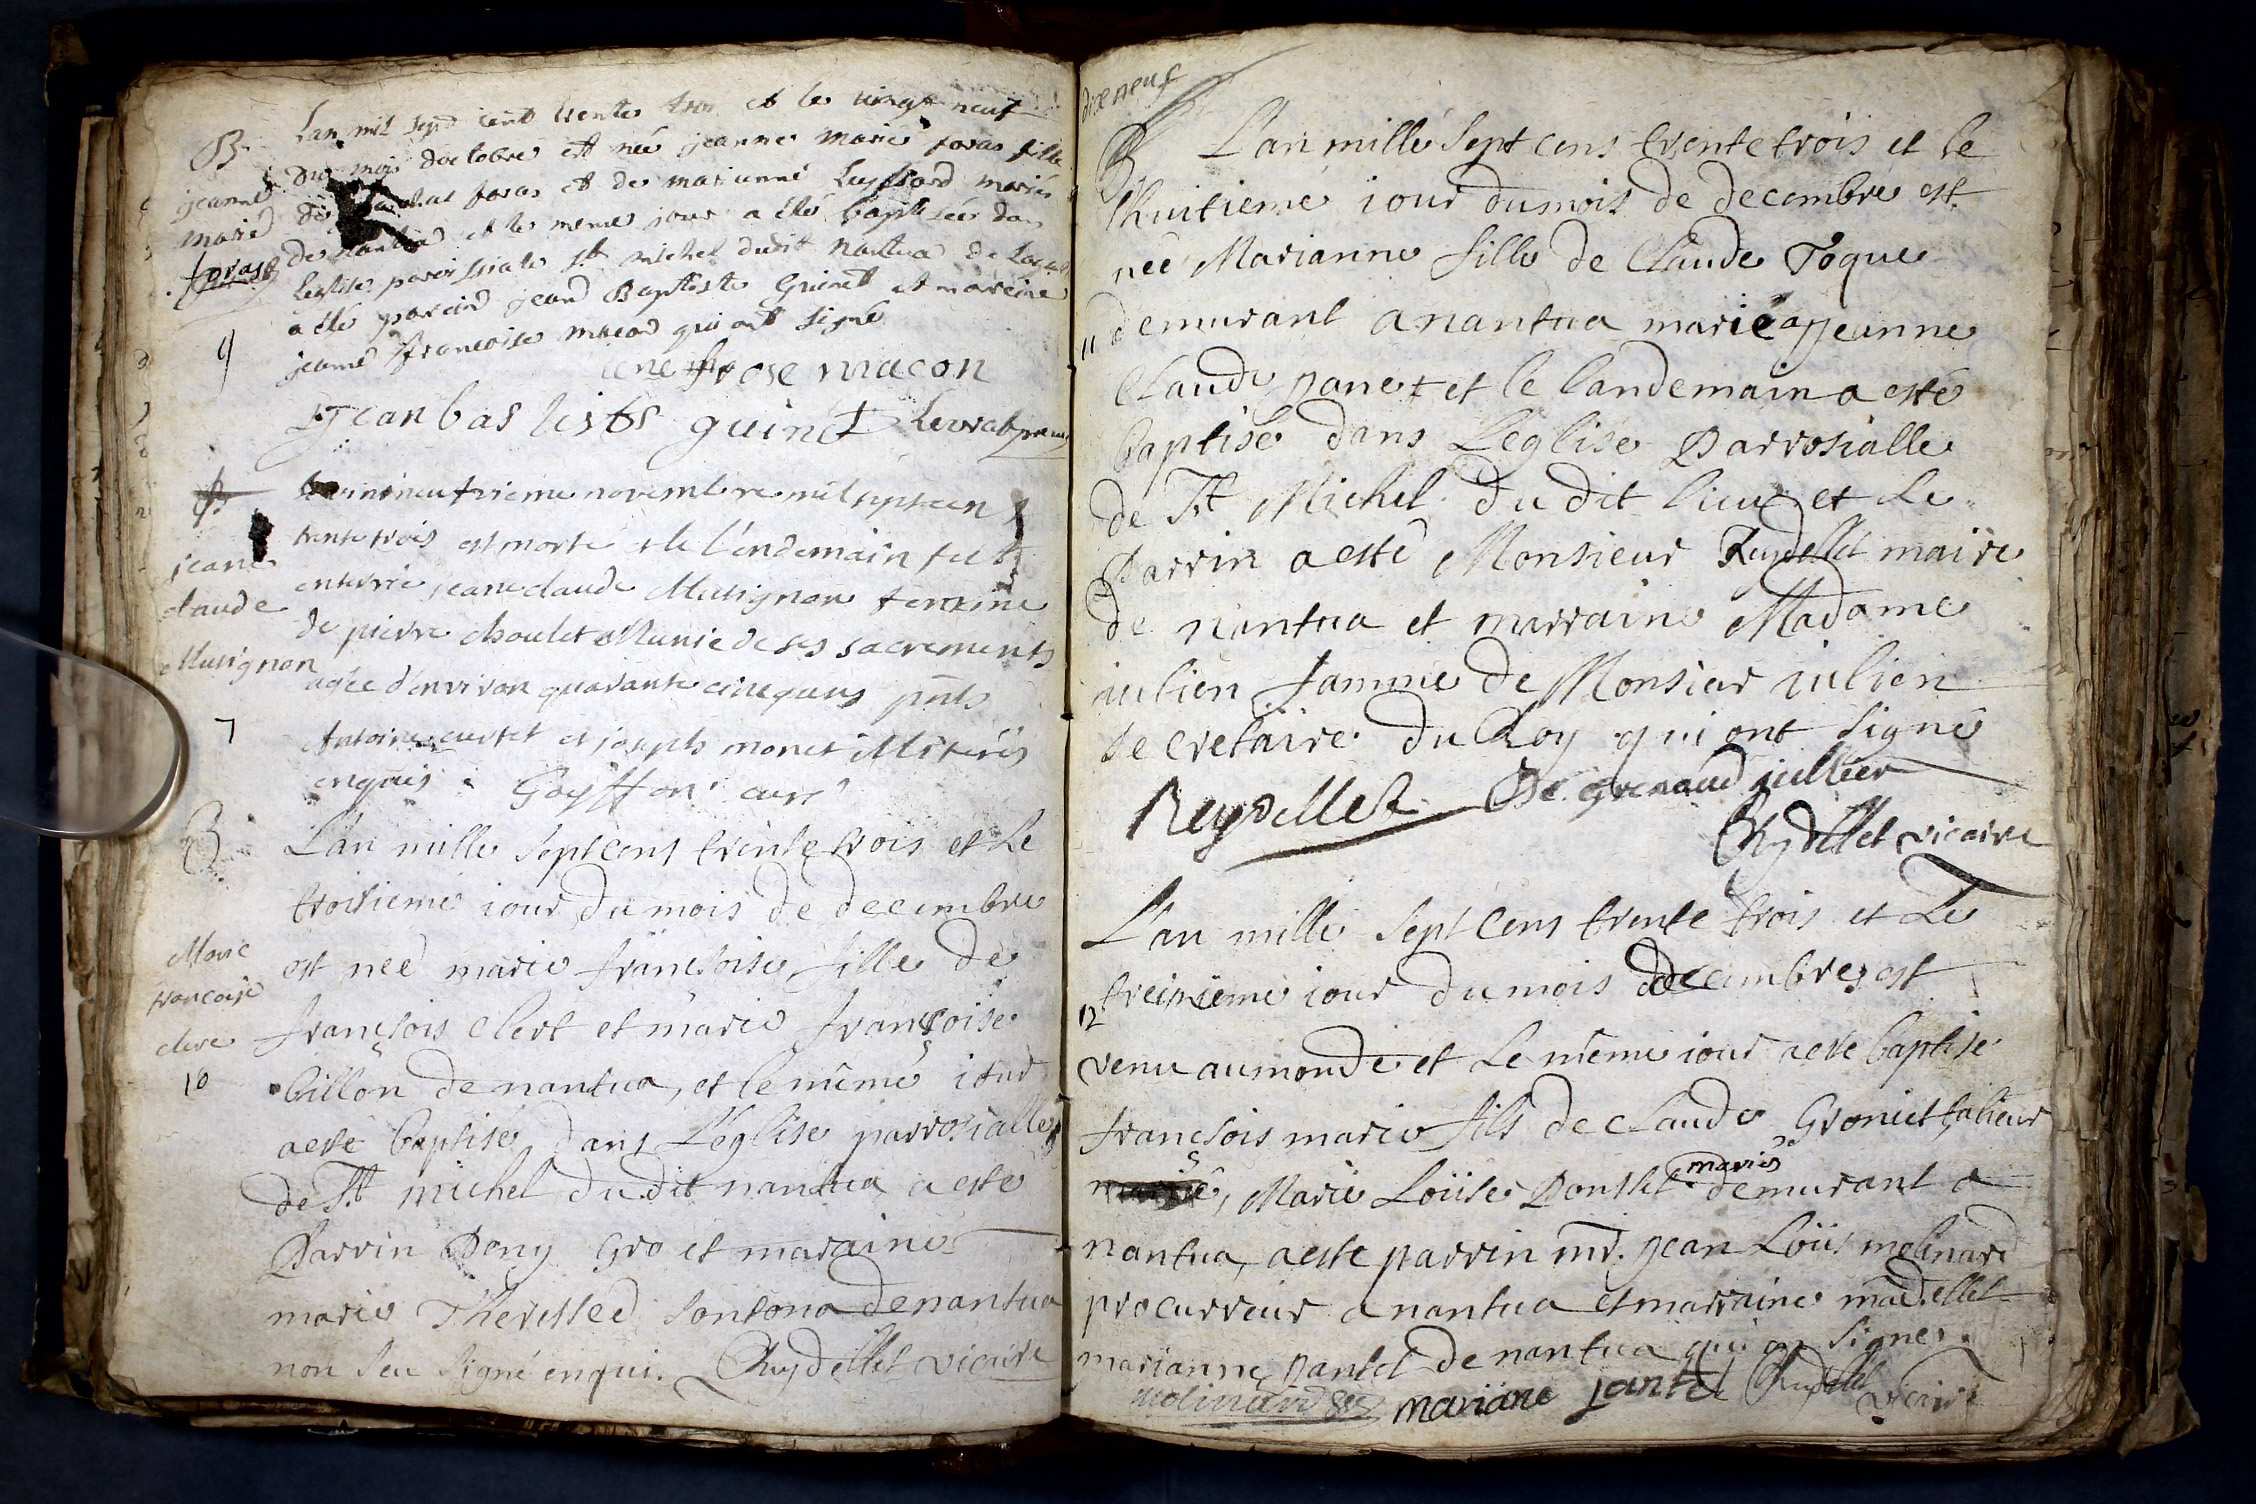 B
jeanne
marie
foras
9
Lan mil sept cent trente trois et le vingt neuf
du mois doctobre est née jeanne marie foras fille
de foras et de marianne mariés
de nantua et le meme jour a été baptisée dans
leglise paroissiale st michel dudit nantua
a été parain jean Baptiste Guinet et mareine
jeanne francoise macon qui ont signé
rose macon
jean bas tiste guinet
jeane
claude
Mutignon
7
novembre mil sept cen
trente trois est morte et le l'endemain fut
enterrée jeane claude Mutignon femme
de pierre choulet Munie de ses sacrements
agée d'environ quarante cinq ans pnts
Antoine curtet et joseph monet illiterés
enquis Goyffon curé
B
Marie
francoise
clere
10
L'an mille sept cens trente trois et Le
troisieme iour du mois de decembre
est neé marie françsoise fille de
françsois clert et marie françsoise
billon de nantua, et le même iour
aesté baptisé dans L'eglise parrosialle
de St michel du dit nantua a esté
Parrin Deny Gro et maraine
marie Theresse sontona de nantua
non seu signé enqui. Reydellet vicaire
dixneuf
B
L'an mille sept cens trente trois et le
huitieme iour du mois de decembre est
neé Marianne fille de Claude Toque
11
demurant a nantua marié a Jeanne
Claude panet et le landemain a esté
baptisé dans L'eglise Parrosialle
de St Michel du dit lieux et Le
Parrin a esté Monsieur Reydellet maire
de nantua et marraine Madame
iulien famme de Monsieur iulien
secretaire du Roy qui ont signé
Reydellet De grenaud jullien
Reydellet vicaire
L'an mille sept Cens trente trois et Le
treizieme iour du mois decembre est
12
venu au monde et Le même iour aesté baptisé
françsois marie fils de claude Groniet tallieur
Marie Loüise Ponsset mariés demurant a
nantua, aesté parrin mr. jean Loüis molinard
procurreur a nantua et marraine madellet
marianne jantet de nantua qui on signé.
molinard mariane jantet Reydellet vicaire